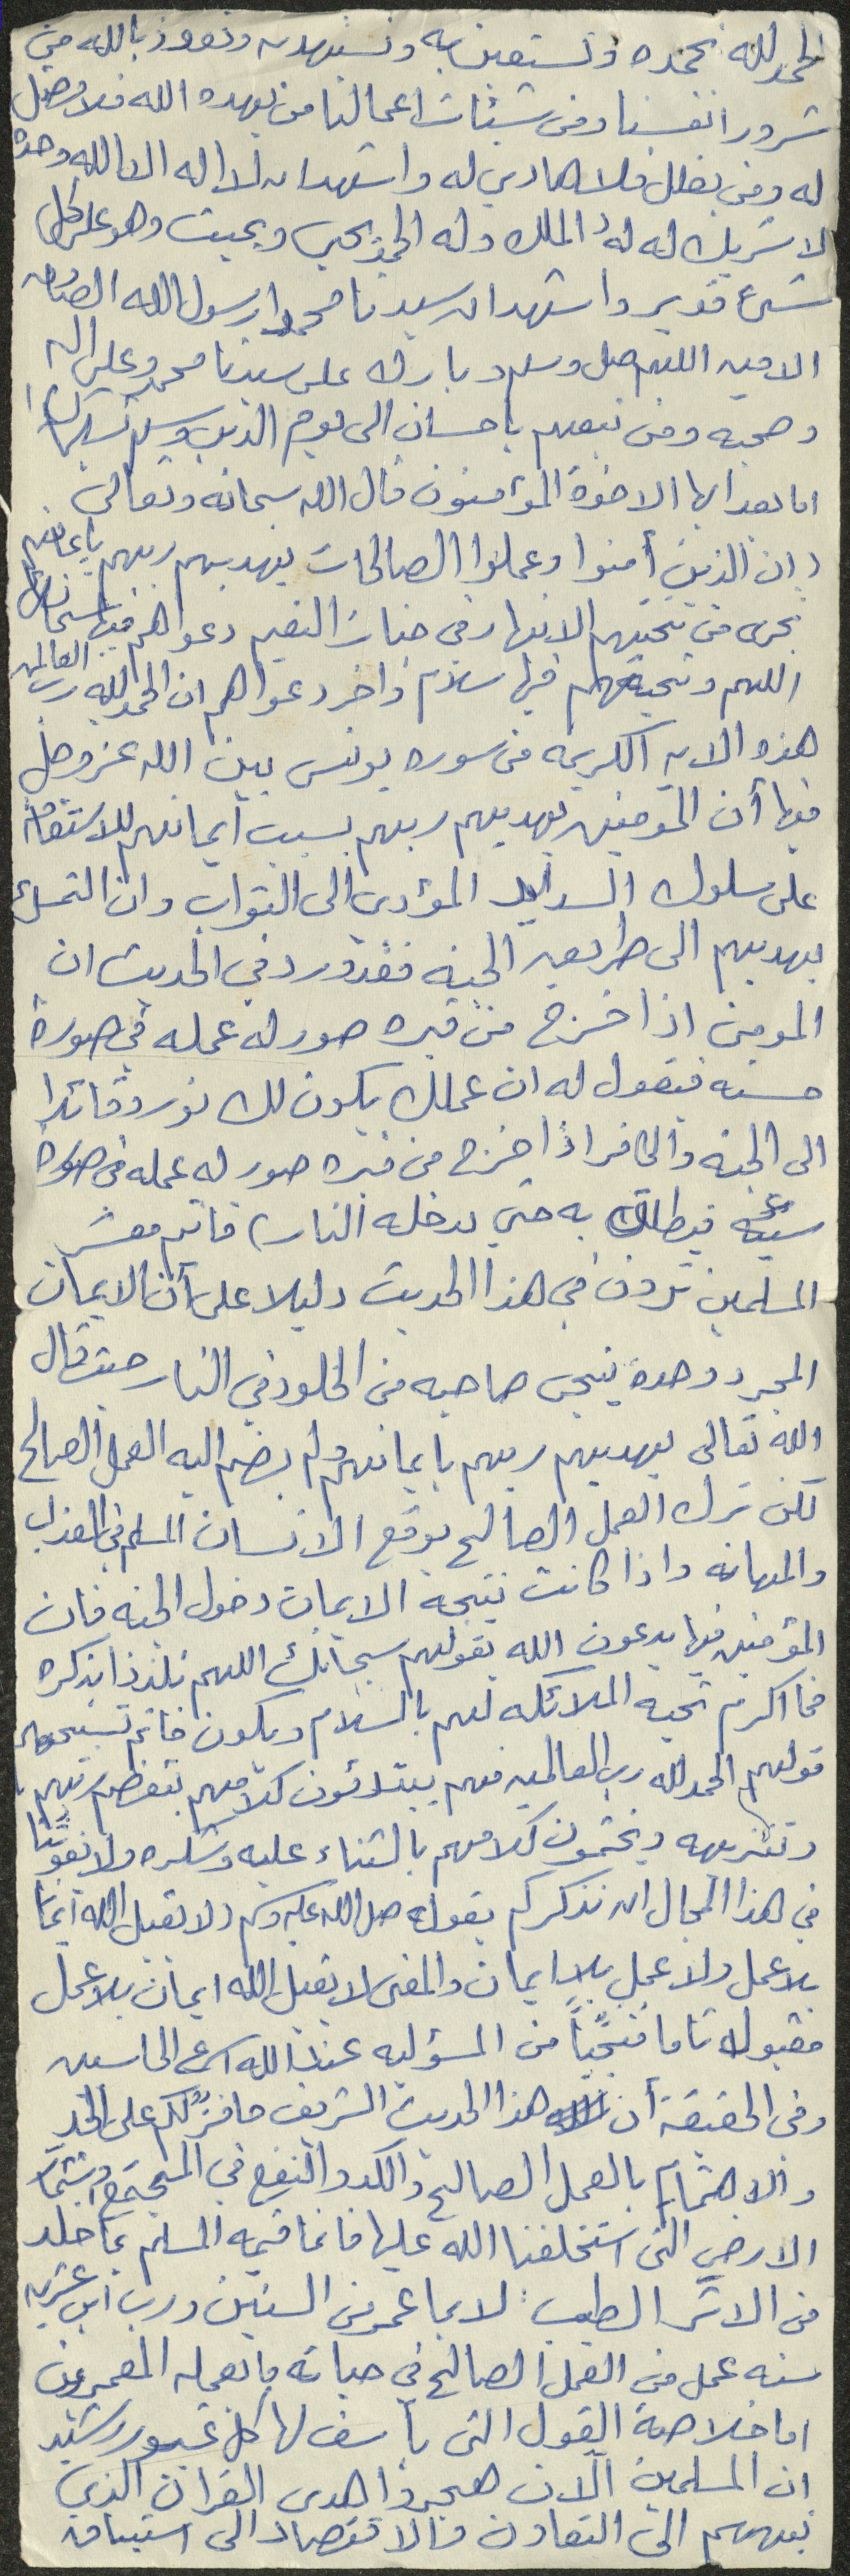 الحمد لله نحمده ونستعين به ونستهديه ونعوذ بالله من
شرور انفسنا ومن سيئات اعمالنا من يهده الله فلا مضل
له ومن يضلل فلا هادي له واشهد ان لا اله الا الله وحده
لا شريك له له الملك وله الحمد يحيي ويميت وهو على كل
شيئ قدير واشهد ان سيدنا محمدا رسول الله الصادق
الامين اللهم صل وسلم وبارك على سيدنا محمد وعلى اله
وصحبه ومن تبعهم باحسان الى يوم الدين وسلم تسليما كثيرا
اما بعد ايها الاخوة المؤمنون قال الله سبحانه وتعالى
(ان الذين أمنوا وعملوا الصالحات يهديهم ربهم بايمانهم
تجري من تحتهم الانهار في جنات النعيم دعواهم فيها سبحانك
اللهم وتحيتهم فيها سلام واخر دعواهم ان الحمد لله رب العالمين
هذه الايه الكريمه من سوره يونس يبين الله عز وجل
فيها أن المؤمنين يهديهم ربهم بسبب أيمانهم للاستقامة
على سلوك السداد المؤدى الى الثواب وان التمسك
يهديهم الى طريق الجنه فقد ورد في الحديث ان
المومن اذا خرج من قبره صور له عمله في صورة
حسنه فيقول له ان عملك يكون لك نور وقائدا
الى الجنه والكافر اذا خرج من قبره صور له عمله في صورة
سيئه فينطلق به حتي يدخله النار) فانتم معشر
المسلمين ترون في هذا الحديث دليلا على أن الايمان
المجرد وحدة ينجى صاحبه من الخلود في النار حيث قال
الله تعالى يهديهم ربهم بايمانهم ولم يضم اليه العمل الصالح
لكن ترك العمل الصالح يوقع الانسان المسلم في العذاب
والمهانه واذا كانت نتيجة الايمان دخول الجنه فان
المؤمنين فيها يدعون الله بقولهم سبحانك اللهم تلذذا بذكره
فما اكرم تحيه الملائكه لهم بالسلام ويكون خاتم تسبيحهم
قولهم الحمد لله رب العالمين فهم يبتدئون كلامهم بتعظيم ربهم
وتنزيهه ويختمون كلامهم بالثناء عليه وشكره ولا يفوتنا
في هذا المجال ان نذكركم بقوله صلى الله عليه وسلم (لا يقبل الله ايمانا
بلا عمل ولا عمل بلا ايمان والمعنى لا يقبل الله ايمان بلا عمل
مقبولا تاما منجيًا من المسؤليه عند الله اسرع الحاسبين
وفي الحقيقة أن هذا الحديث الشريف حافزٌ لكم على الجد
والاهتمام بالعمل الصالح والكد والنفع في المجتمع
الارض التى استخلفنا الله عليها فانما قيمه المسلم بما خلد
من الاثر الطيب: لا بما عمر من السنين ورب ابن عشرين
سنه عمل من العمل الصالح في حياته ما لم يعمله المعمرون
اما خلاصة القول التى يأسف لها كل غيور رشيد
ان المسلمين الآن هجروا هدى القران الذي
يهديهم الى التعاون والاقتصاد الى